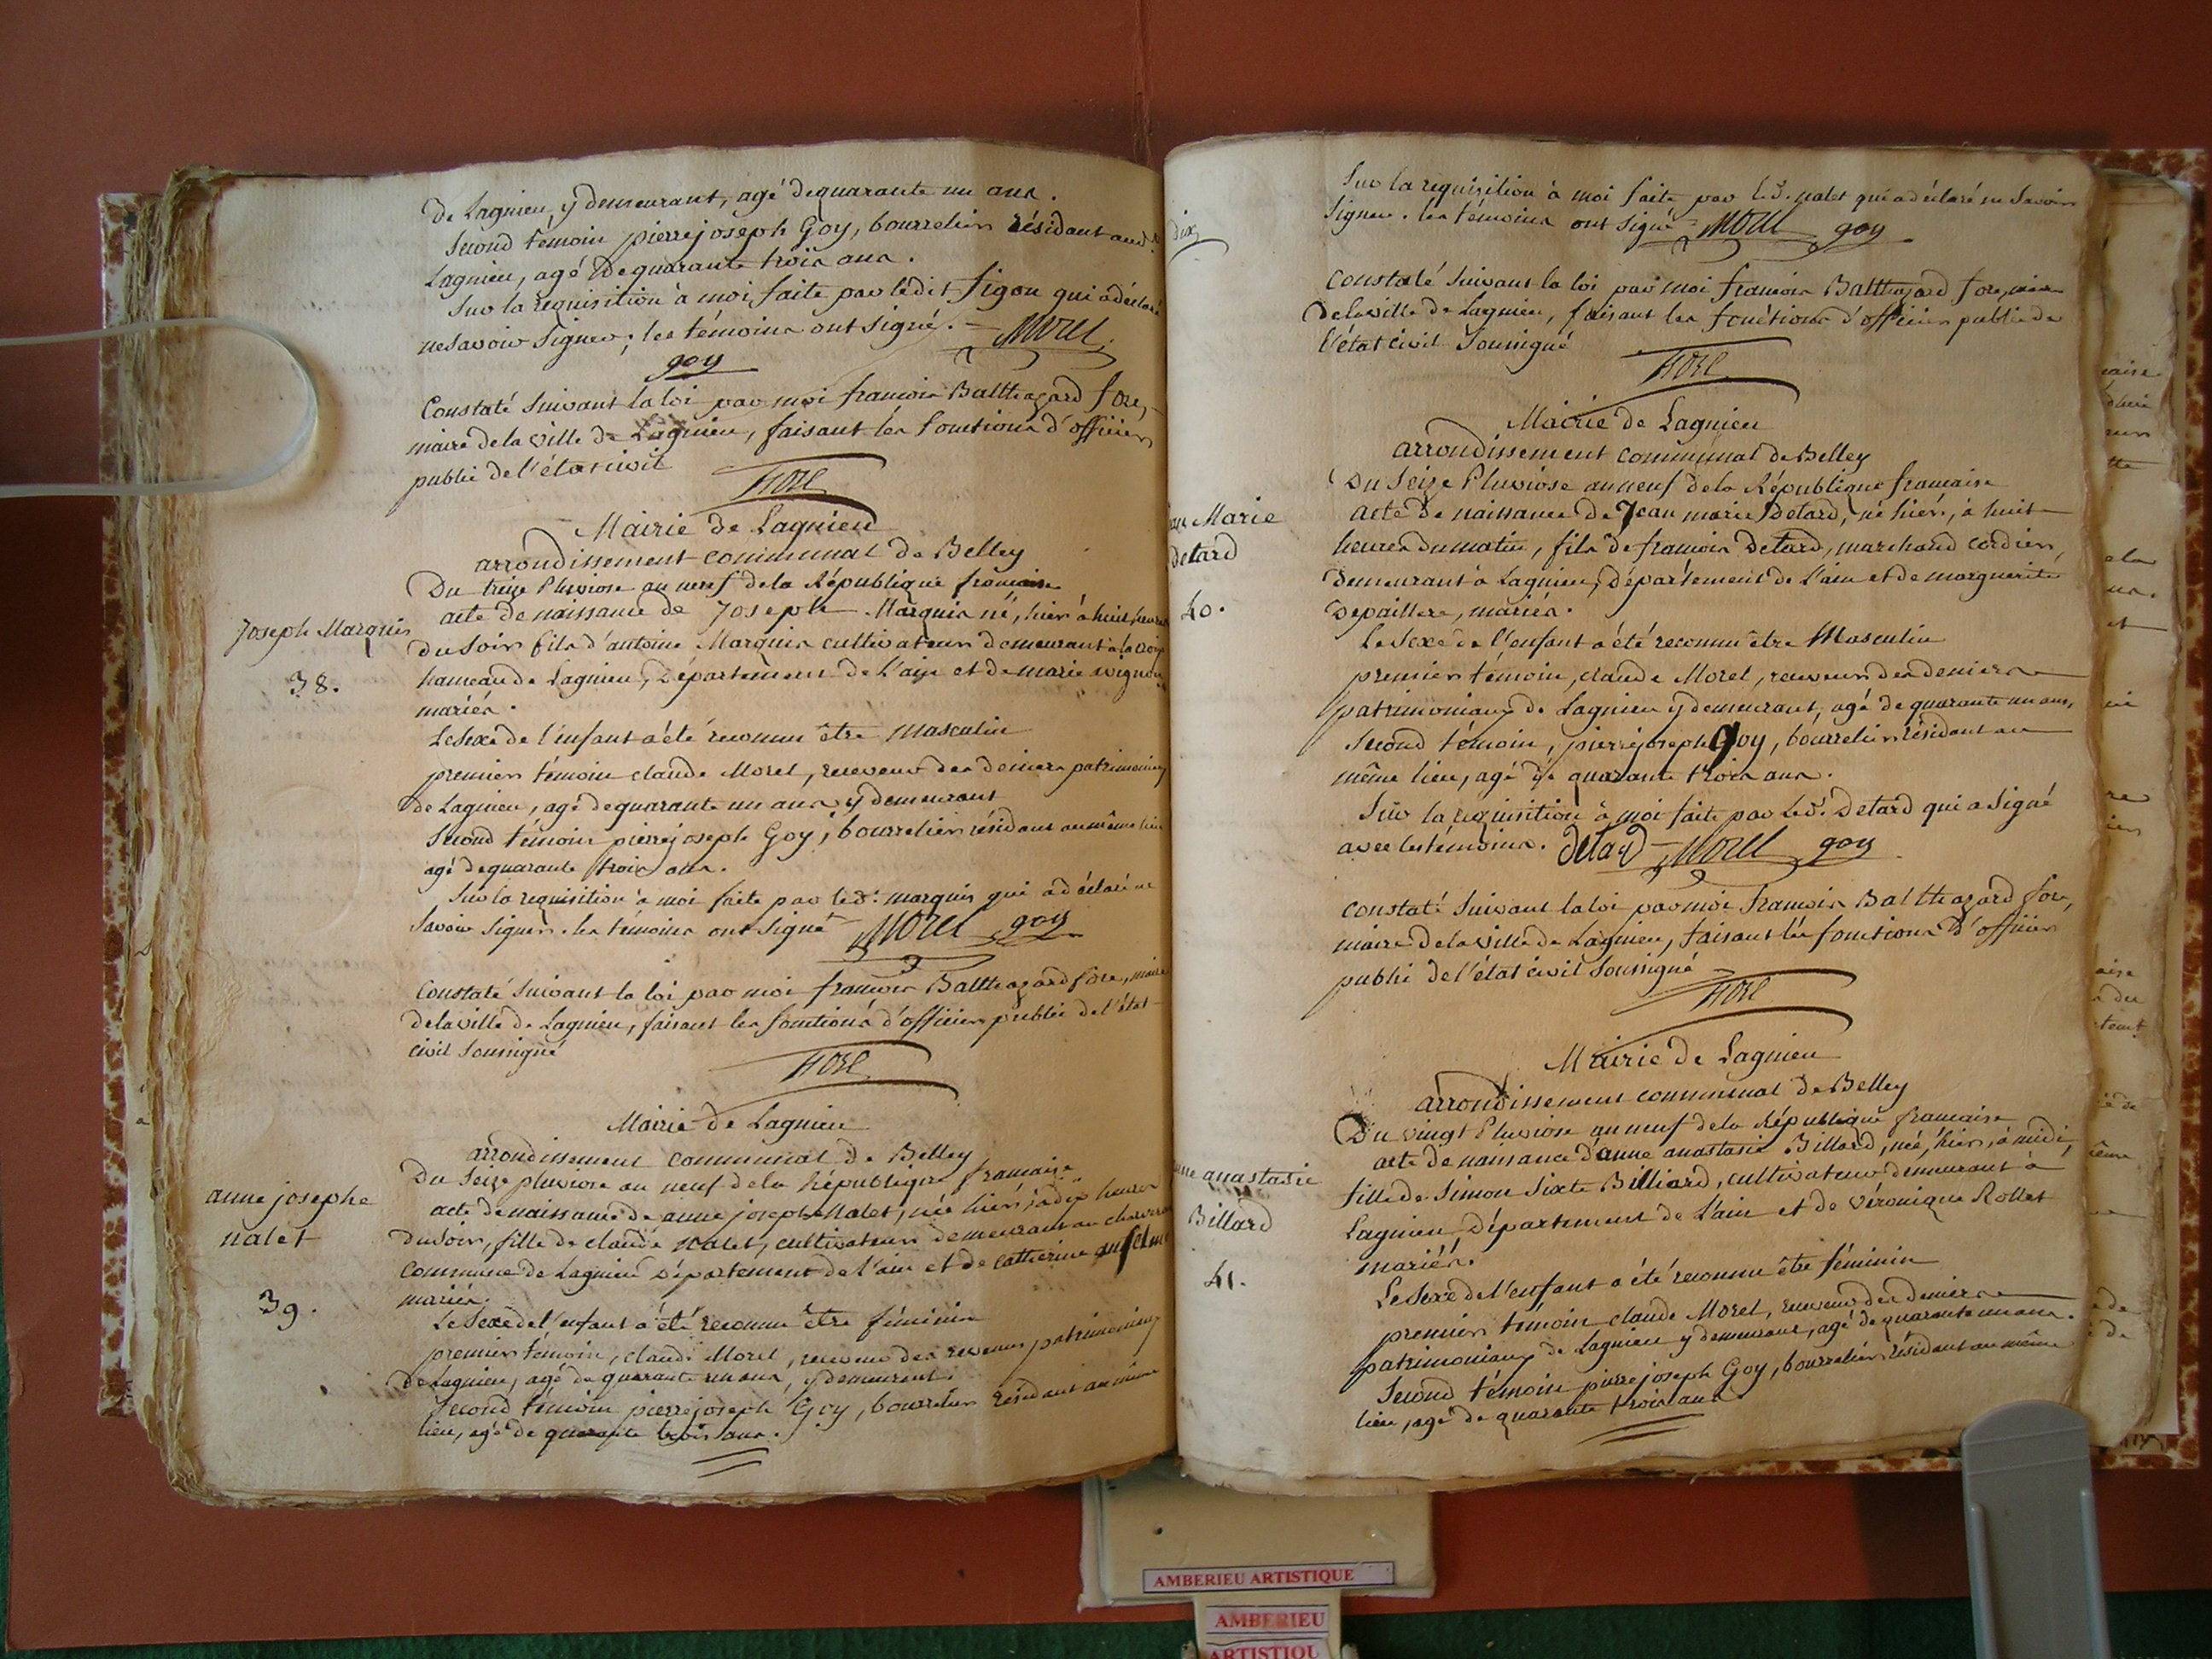 de Lagnieu, y demeurant, agé de quarante un ans.
Second témoin pierre joseph Goy, bourrelier résidant aud.
Lagnieu, agé de quarante trois ans.
Sur la requisition à moi faite par ledit figon qui a déclaré
ne savoir signer; les témoins ont signé. Morel
goy
Constaté suivant la loi par moi francois Balthazard fore,
maire de la ville de Lagnieu, faisant les fonctions d'officier
public de l'état civil
fore
Mairie de Lagnieu
arrondissement communal de Belley
Du treize Pluviose an neuf de la République francaise
Joseph Marquis
38.
acte de naissance de Joseph Marquis né, hier à huit heures
du soir fils d'antoine Marquis cultivateur demeurant à la
hameau de Lagnieu, Département de L'ain et de marie
mariés.
Le Sexe de l'enfant a été reconnu être masculin
premier témoin claude Morel, receveur des deniers patrimoniaux
de Lagnieu, agé de quarante un ans y demeurant
Second témoin pierre joseph Goy, bourrelier résidant au même lieu
agé de quarante trois ans.
Sur la requisition à moi faite par led. marquis qui a déclaré ne
savoir signer. les témoins ont signé Morel goy
Constaté suivant la loi par moi francois Balthazard fore, maire
de la ville de Lagnieu, faisant les fonctions d'officier public de l'état
civil soussigné
fore
Mairie de Lagnieu
arrondissement communal de Belley
Du Seize pluviose an neuf de la République francaise
anne josephe
nalet
39.
acte de naissance de anne josephe Nalet, née hier, à dix heures
du soir, fille de claude Nalet, cultivateur demeurant au
commune de Lagnieu Département de l'ain et de catherine anselme
mariés.
Le Sexe de l'enfant a été reconnu être féminin
premier témoin, claude Morel, receveur des revenus patrimoniaux
de Lagnieu, agé de quarante un ans, y demeurant.
Second témoin pierre joseph Goy, bourrelier résidant au même
lieu, agé de quarante trois ans.
dix
Sur la requisition à moi faite par led. nalet qui a déclaré ne savoir
signer. les témoins ont signé Morel goy
Constaté suivant la loi par moi francois Balthazard fore, maire
de la ville de Lagnieu, faisant les fonctions d'officier public de
l'état civil soussigné
fore
Mairie de Lagnieu
arrondissement communal de Belley
Du Seize Pluviose an neuf de la République francaise
Marie
detard
40.
acte de naissance de Jean marie Detard, né hier, à huit
heures du matin, fils de francois Detard, marchand cordier,
demeurant à Lagnieu, Département de L'ain et de marguerite
Depaillere, mariés.
Le Sexe de l'enfant a été reconnu être Masculin
premier témoin, claude Morel, receveur des deniers
patrimoniaux de Lagnieu y demeurant, agé de quarante un ans,
Second témoin, pierre joseph Goy, bourrelier résidant au
même lieu, agé de quarante trois ans.
Sur la requisition à moi faite par led. Detard qui a signé
avec les témoins. Detard Morel goy
Constaté suivant la loi par moi francois Balthazard fore,
maire de la ville de Lagnieu, faisant les fonctions d'officier
public de l'état civil soussigné
fore
Mairie de Lagnieu
arrondissement communal de Belley
Du vingt Pluviose an neuf de la République francaise
anastasie
Billard
41.
acte de naissance d'anne anastasie Billard, née, hier, à midi,
fille de Simon Sixte Billiard, cultivateur demeurant à
Lagnieu, Département de L'ain et de véronique Rollet
mariés.
Le Sexe de l'enfant a été reconnu être féminin
premier témoin claude Morel, receveur des deniers
patrimoniaux de Lagnieu y demeurant, agé de quarante un ans.
Second témoin pierre joseph Goy, bourrelier résidant au même
lieu, agé de quarante trois ans
AMBERIEU ARTISTIQUE
AMBERIEU